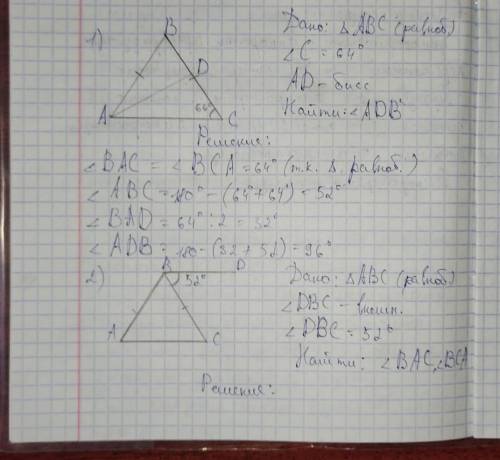 1)
B
D
A
64°
C
Дано: △ABC (равноб.)
∠C = 64°
AD - бисс
Найти: ∠ADB
Решение:
∠BAC = ∠BCA = 64° (т.к. △ равноб.)
∠ABC = 180° - (64° + 64°) = 52°
∠BAD = 64° : 2 = 32°
∠ADB = 180 - (32 + 52) = 96°
2)
B
D
52°
A
C
Дано: △ABC (равноб)
∠DBC - внешн.
∠DBC = 52°
Найти: ∠BAC, ∠BCA
Решение: